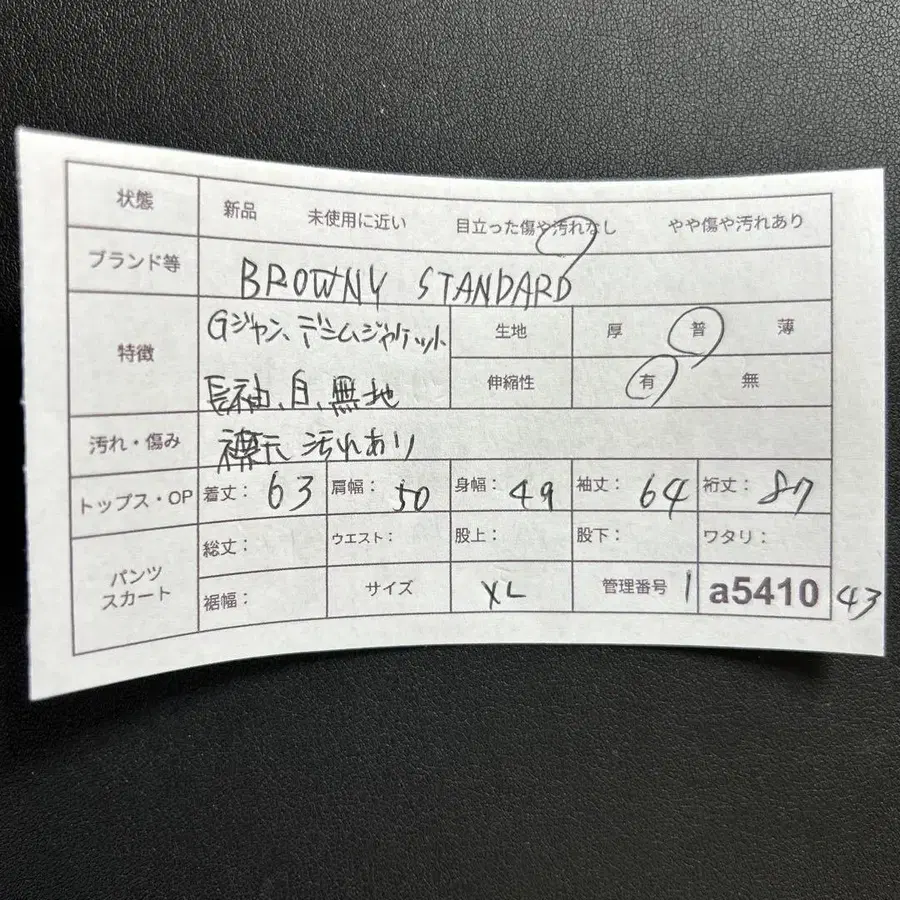 状態 新品 未使用に近い 目立った傷や汚れなし やや傷や汚れあり
ブランド等 BROWNY STANDARD
特徴 Gジャン、デニムジャケット 生地 厚 普 薄
長袖、白、無地 伸縮性 有 無
汚れ・傷み 襟元 汚れあり
トップス・OP 着丈: 63 肩幅: 50 身幅: 49 袖丈: 64 裄丈: 87
パンツ スカート 総丈: ウエスト: 股上: 股下: ワタリ:
裾幅: サイズ XL 管理番号 1 a5410 43